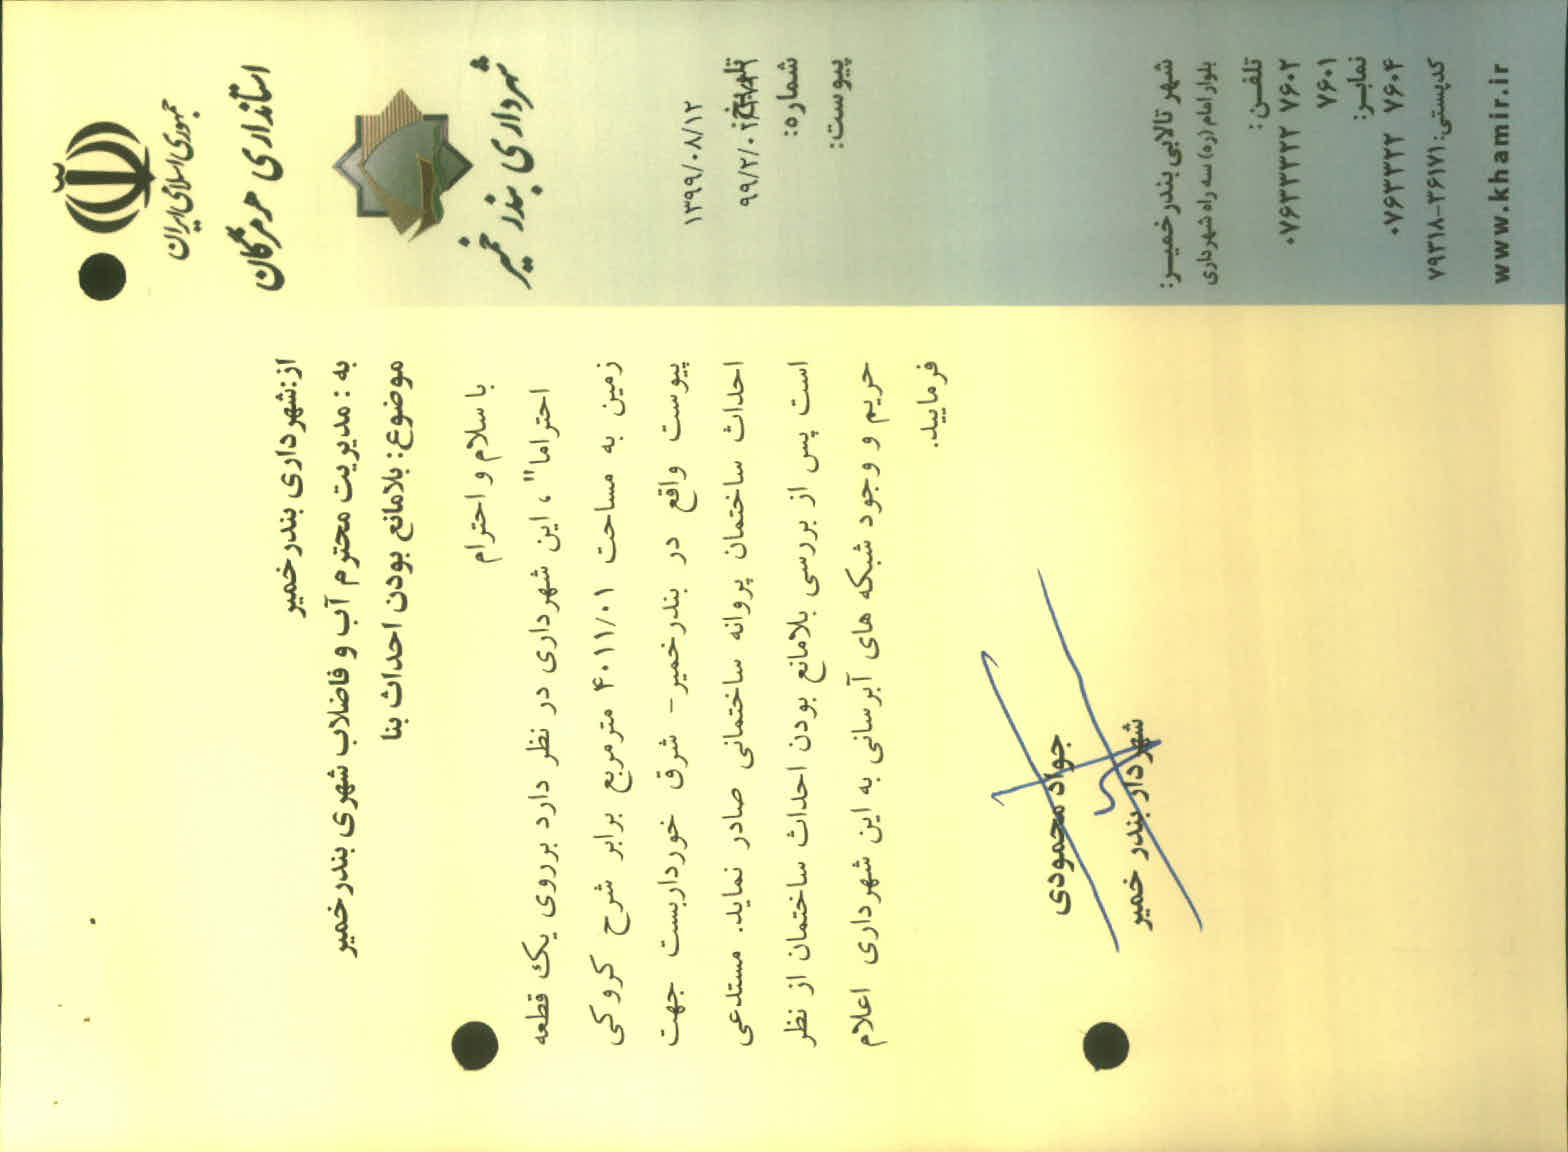 جمهوری اسلامی ایران
استانداری هرمزگان
شهرداری بندر خمیر
۱۳۹۹/۰۸/۱۲
تاریخ:
شماره:
پیوست:
شهر تالابی بندر خمیـر:
بلوار امام (ره) سه راه شهرداری
تلفـن:
۰۷۶۳۳۳۲۲ ۷۶۰۲
۷۶۰۱
نمابـر:
۰۷۶۳۳۲۲ ۷۶۰۴
کدپستی: ۷۹۳۱۸-۲۶۱۷۱
www.khamir.ir
از:شهرداری بندرخمیر
به : مدیریت محترم آب و فاضلاب شهری بندرخمیر
موضوع: بلامانع بودن احداث بنا
با سلام و احترام
احتراما" ، این شهرداری در نظر دارد برروی یک قطعه
زمین به مساحت ۴۰۱۱/۰۱ مترمربع برابر شرح کروکی
پیوست واقع در بندرخمیر- شرق خورداربست جهت
احداث ساختمان پروانه ساختمانی صادر نماید. مستدعی
است پس از بررسی بلامانع بودن احداث ساختمان از نظر
حریم و وجود شبکه های آبرسانی به این شهرداری اعلام
فرمایید.
جواد محمودی
شهردار بندر خمیر